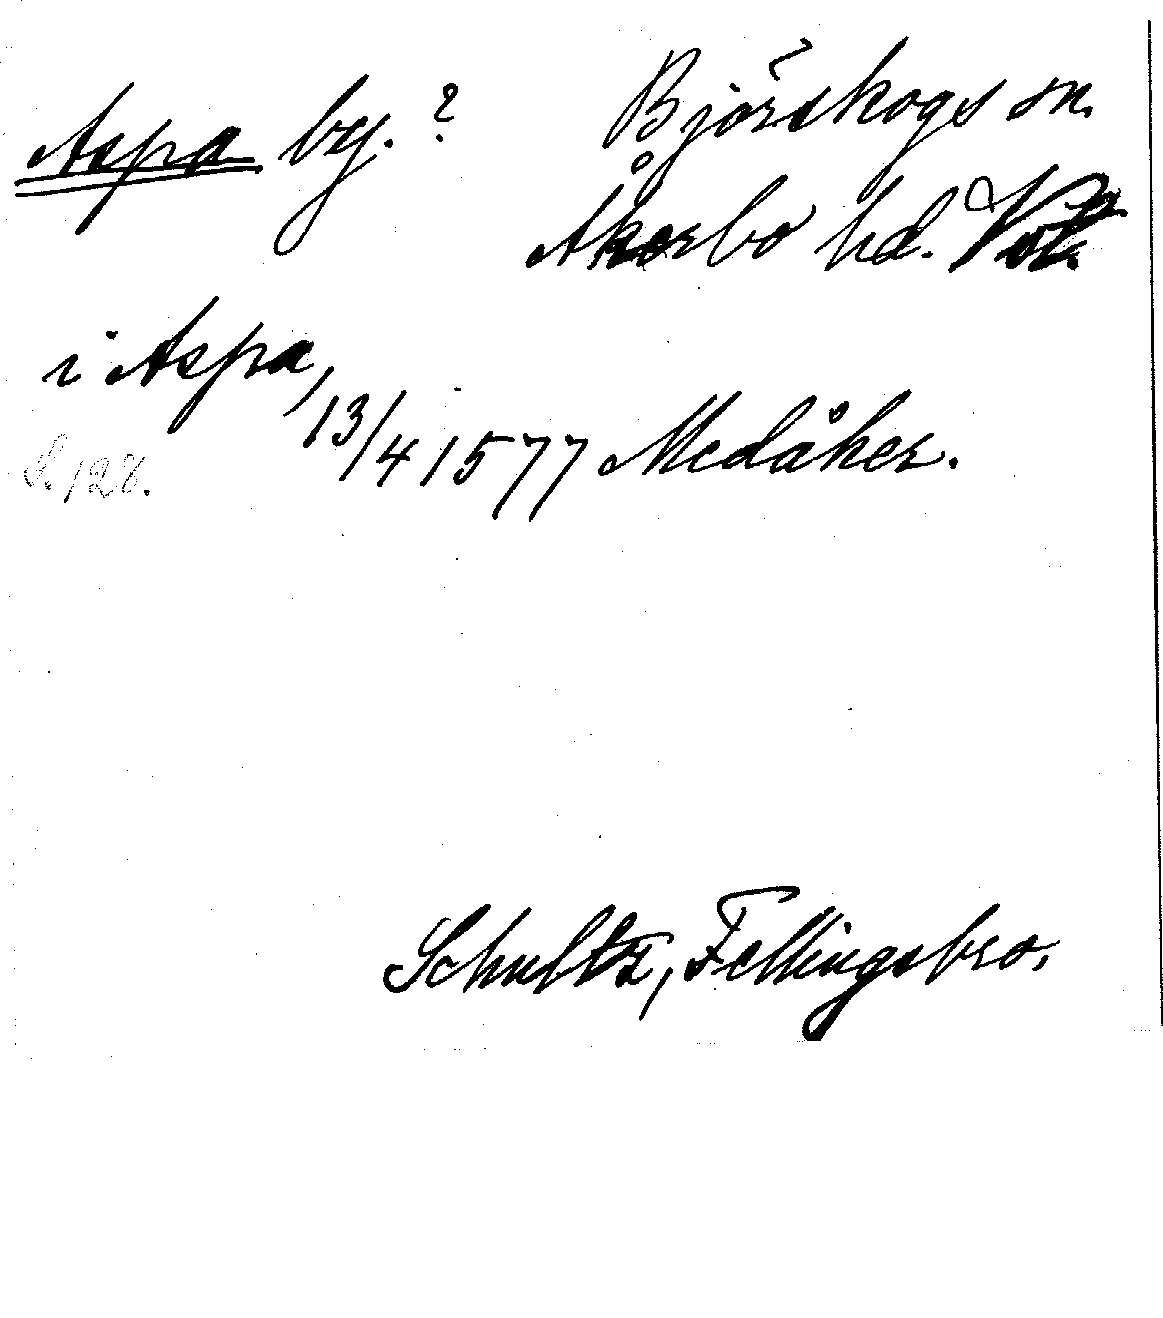 Aspa by. ? Björskogs sn.
Åkerbo hd.
i Aspa, 13/4 1577 Medåker.
S. 128.
Schultz, Fellingsbro.